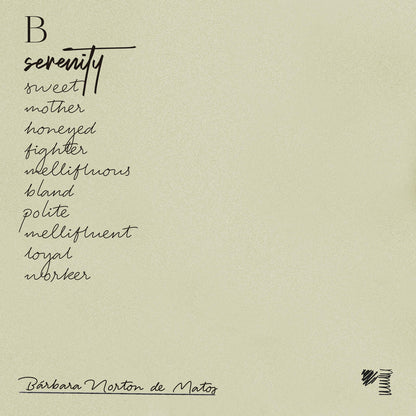 B
serenity
sweet
mother
honeyed
fighter
mellifluous
bland
polite
mellifluent
loyal
worker
Bárbara Norton de Matos